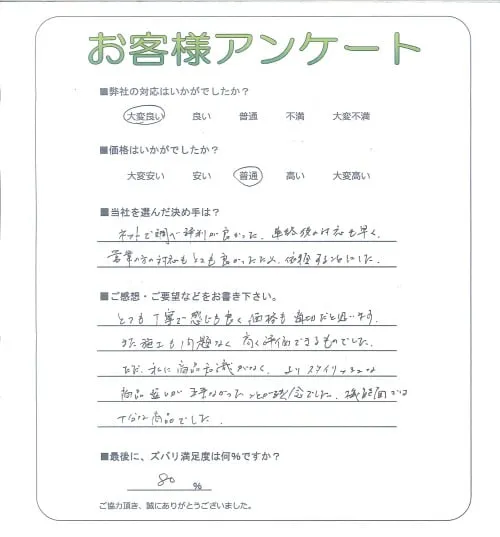 お客様アンケート
■弊社の対応はいかがでしたか？
大変良い 良い 普通 不満 大変不満
■価格はいかがでしたか？
大変安い 安い 普通 高い 大変高い
■当社を選んだ決め手は？
ネットで調べ評判が良かった。連絡後の対応も早く、
営業の方の対応もとても良かったため、依頼することにした。
■ご感想・ご要望などをお書き下さい。
とても丁寧で感じも良く価格も適切だと思います。
また施工も問題なく高く評価できるものでした。
ただ、私に商品知識がなく、よりスタイリッシュな
商品 ができなかったことが残念でした。機能面では
十分な商品でした。
■最後に、ズバリ満足度は何％ですか？
80 ％
ご協力頂き、誠にありがとうございました。